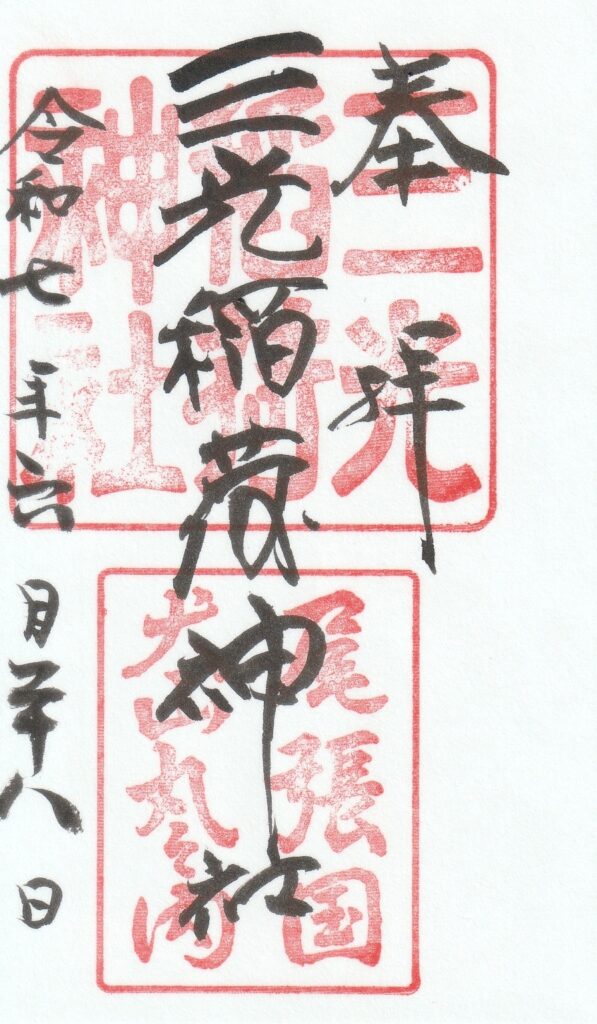 奉拝
三光稲荷神社
令和七年六月二十八日
三光
稲荷
神社
尾張国
犬山丸之内